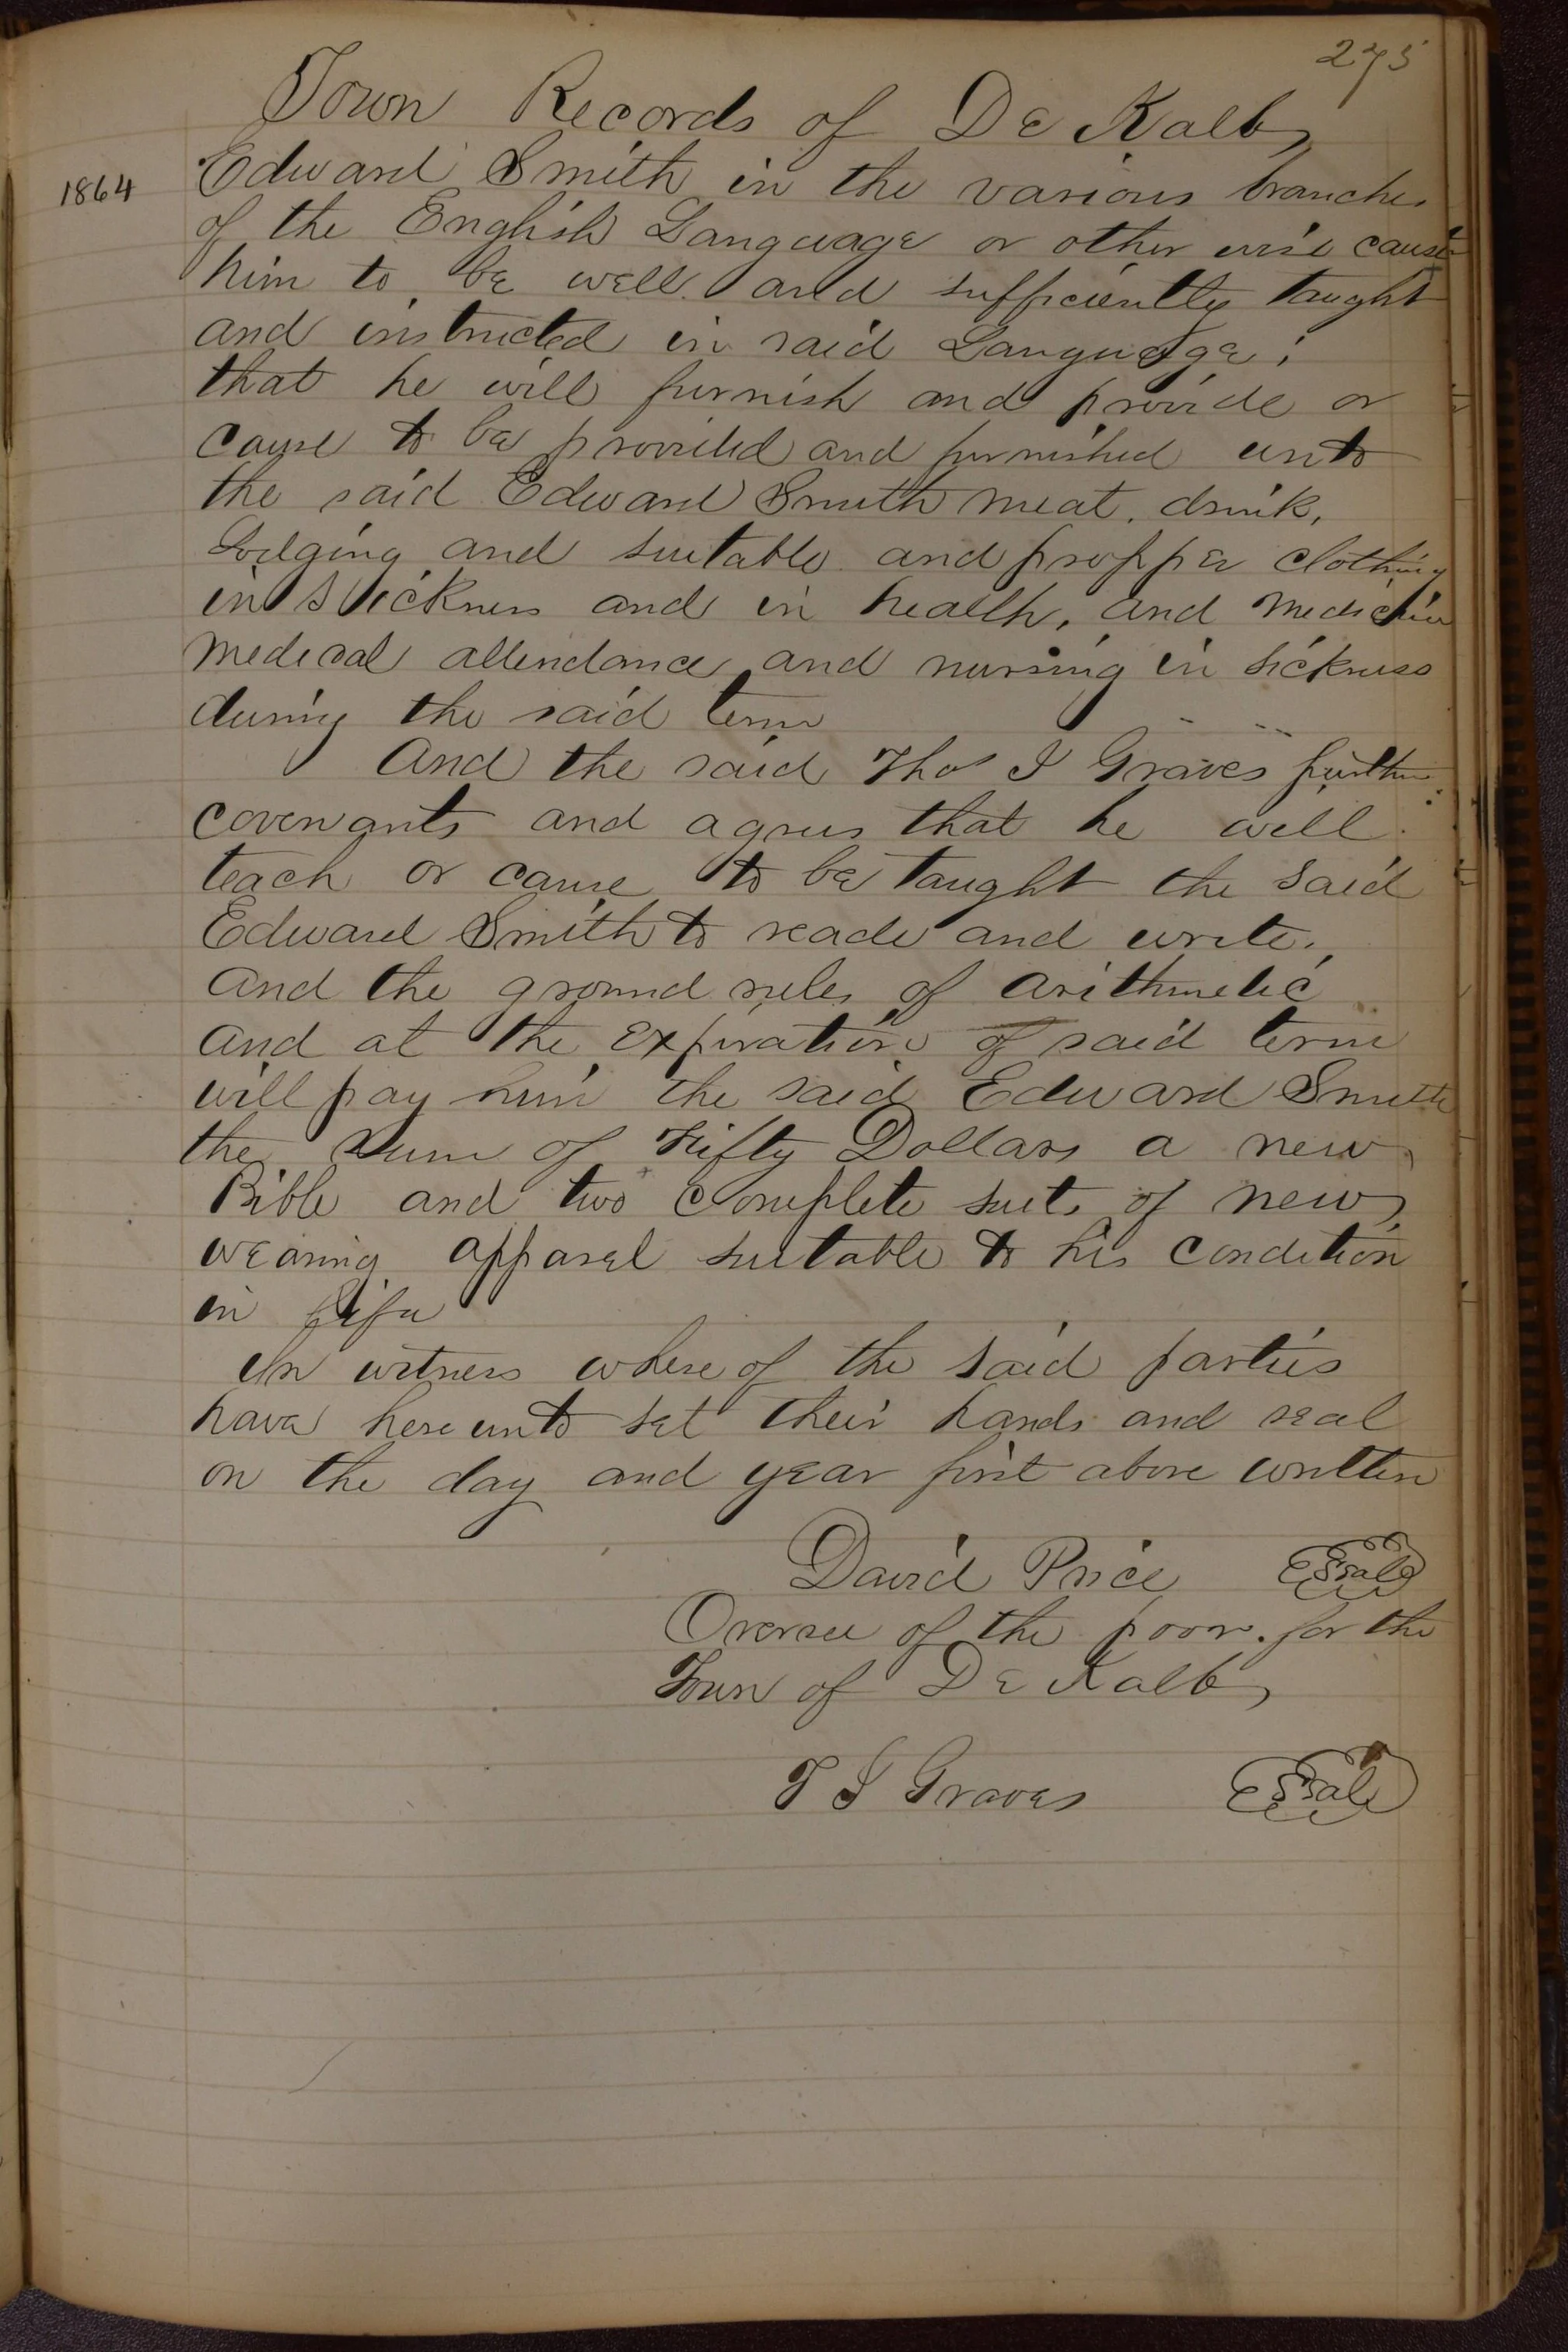 275
Town Records of De Kalb
1864
Edward Smith in the various branches
of the English Language or other wise cause
him to be well and sufficiently taught
and instructed in said Language;
that he will furnish and provide or
cause to be provided and furnished unto
the said Edward Smith meat, drink,
Lodging and suitable and propper clothing
in sickness and in health, and Medicine
medical attendance and nursing in sickness
during the said term
And the said Thos J Graves further
covenants and agrees that he will
teach or cause to be taught the said
Edward Smith to reade and write,
and the ground rules of arithmetic
and at the expiration of said term
will pay him the said Edward Smith
the sum of Fifty Dollars a new
Bible and two complete suits of new
wearing apparel suitable to his condition
in life
In witness where of the said parties
have here unto set their hands and seal
on the day and year first above written
David Price Seal
Oversee of the poor. for the
Town of De Kalb
T J Graves Seal